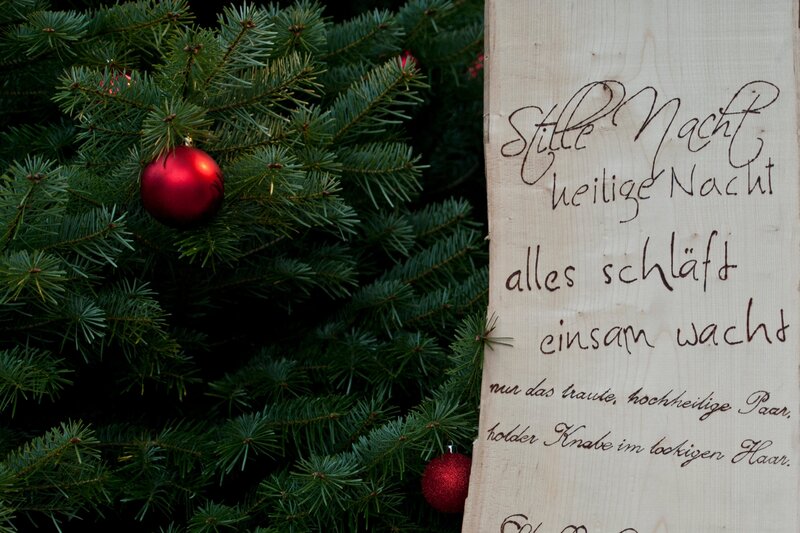 Stille Nacht
heilige Nacht
alles schläft
einsam wacht
nur das traute, hochheilige Paar,
holder Knabe im lockigen Haar.